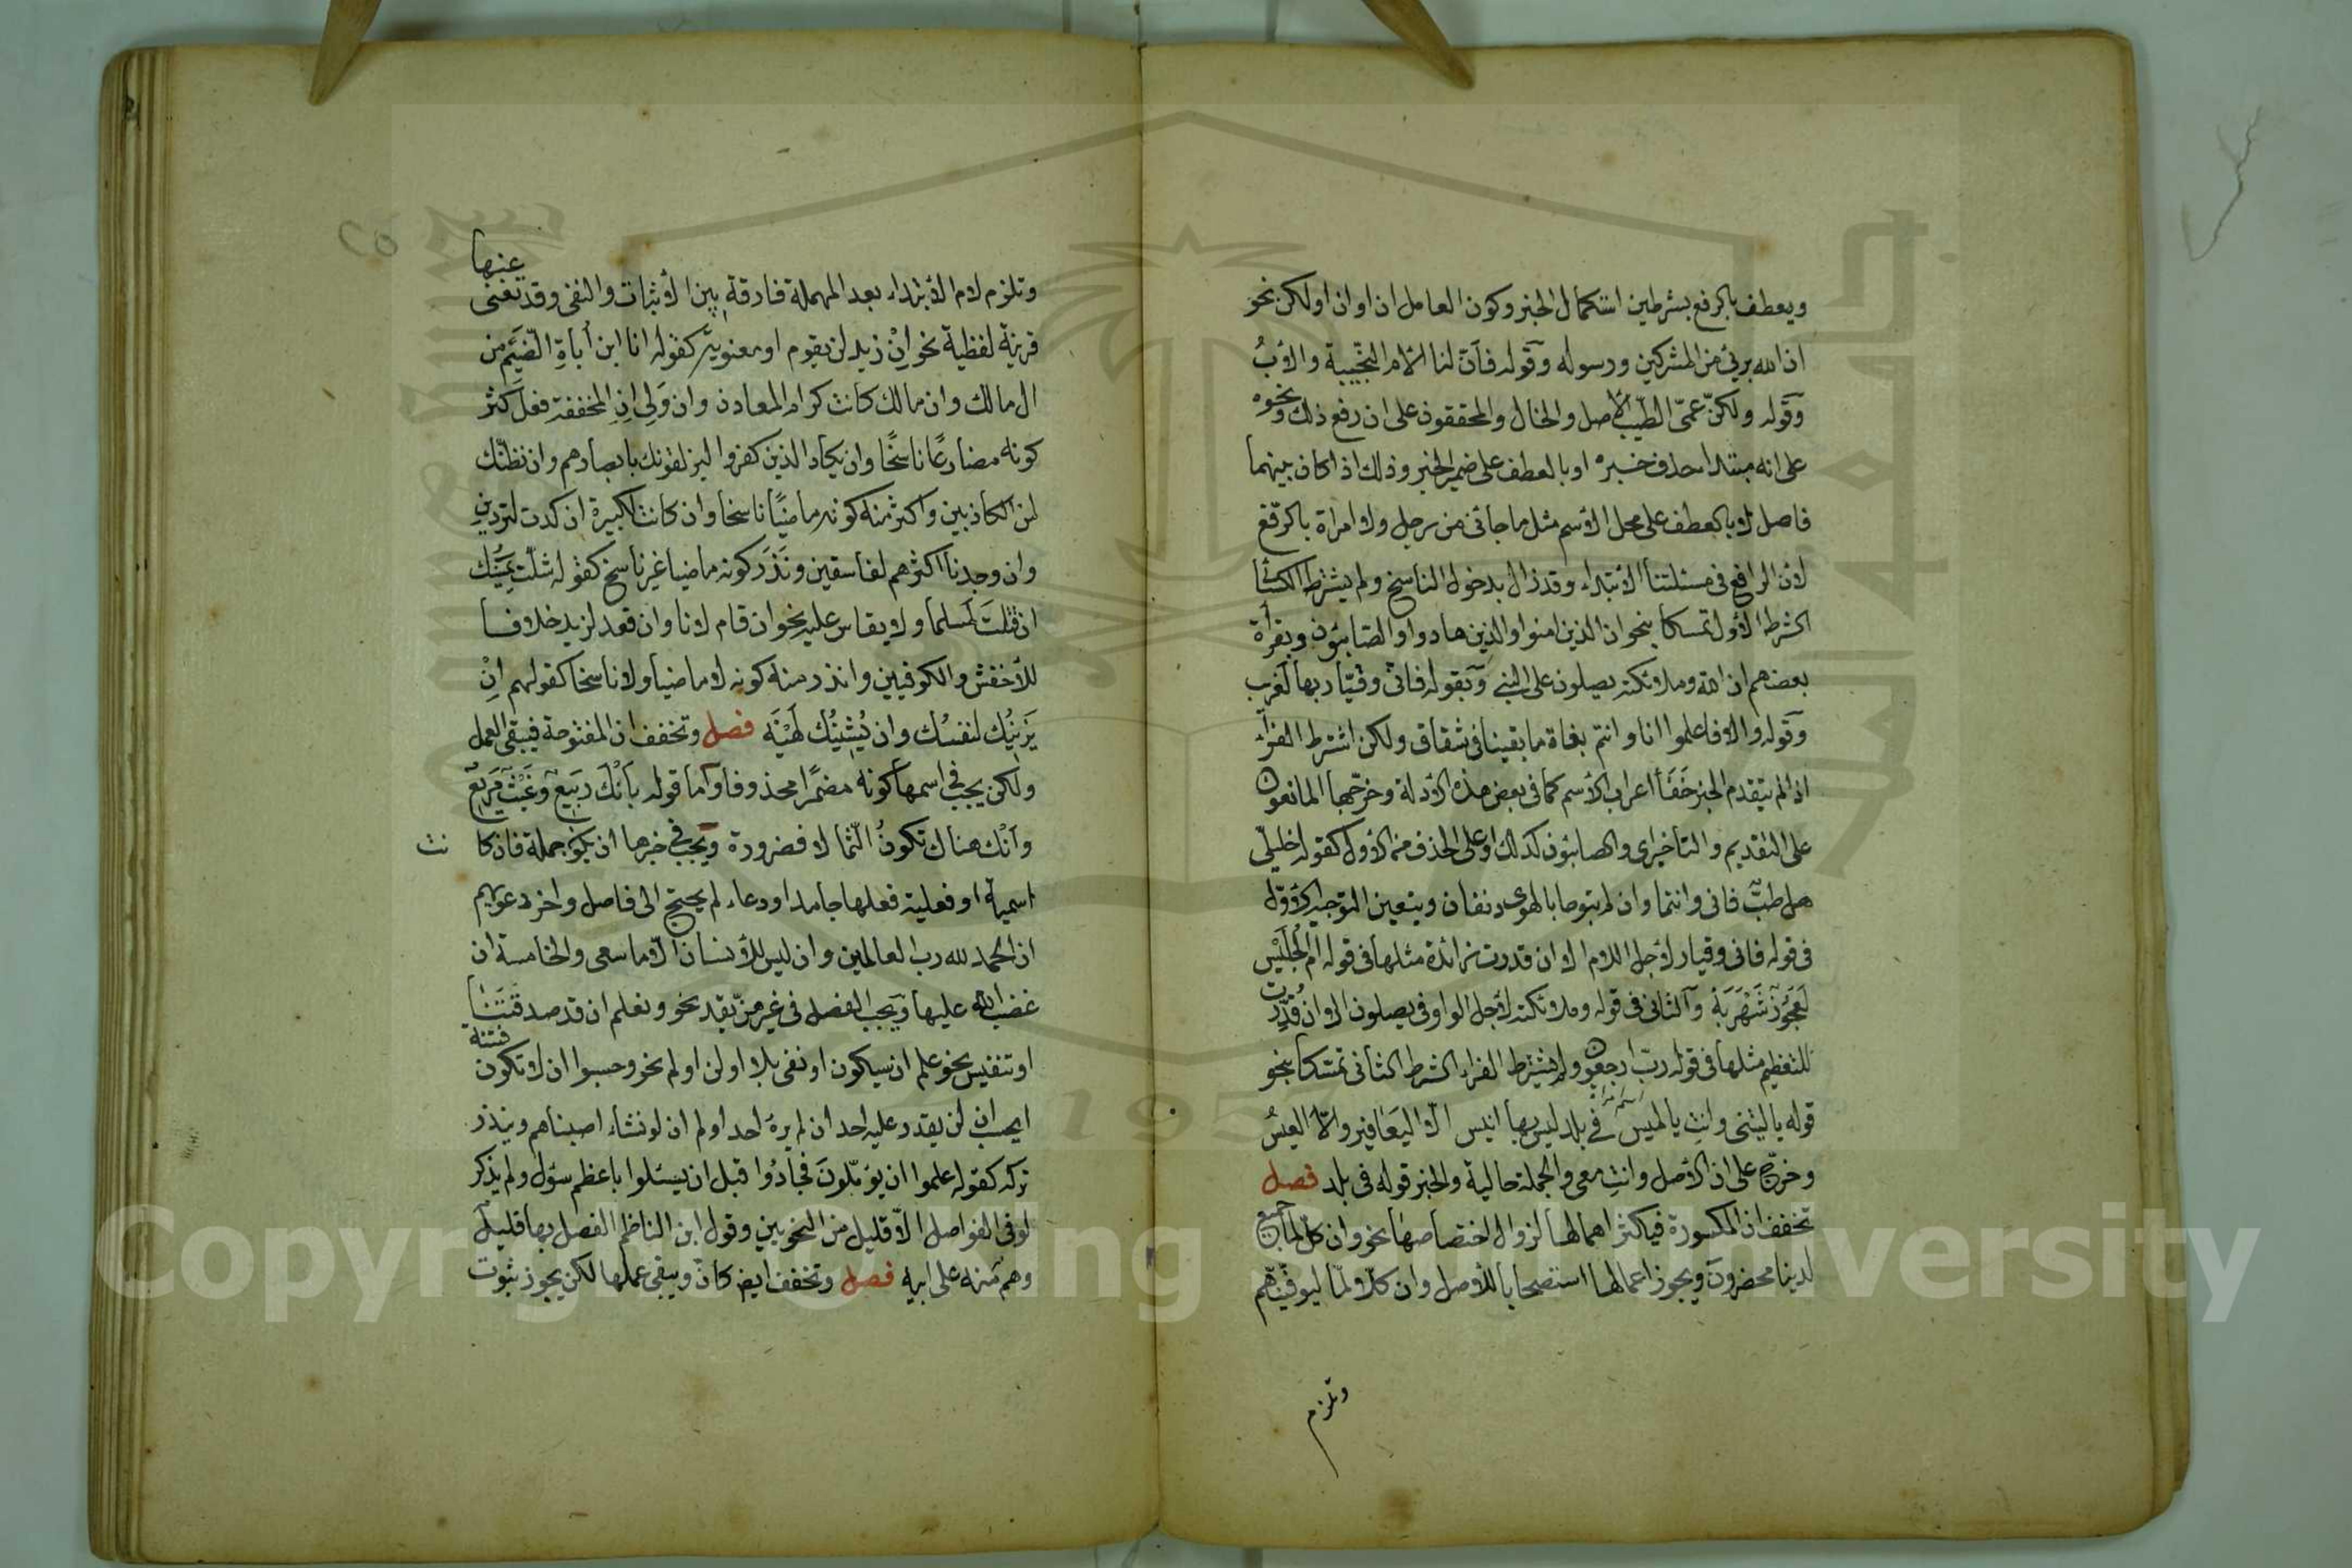 ويعطف بالرفع بشرطين استكمال الخبر وكون العامل ان او ان او لكن نحو
ان الله برئ من المشركين ورسوله وقوله فان لنا الام النجيبة والاب
وقوله ولكن عمى الطيب الاصل والخال والمحققون على ان رفع ذلك ونحوه
على انه مبتدا حذف خبره او بالعطف على ضمير الخبر وذلك اذا كان بينهما
فاصل لا بالعطف على محل الاسم مثل ما جائى من رجل ولا امراة بالرفع
لان الرافع فى مسئلتنا الابتداء وقد زال بدخول الناسخ ولم يشترط الكسائى
الشرط الاول تمسكا بنحو ان الذين امنوا والذين هادوا والصابئون وبقرأة
بعضهم ان الله وملائكته يصلون على النبى وبقوله فانى وقيار بها لغريب
وقوله والا فاعلموا انا وانتم بغاة ما بقينا فى شقاق ولكن اشترط الفراء
اذا لم يتقدم الخبر خفا اعراب الاسم كما فى بعض هذه الادلة وخرجها المانعون
على التقديم والتاخير اى والصابئون كذلك او على الحذف من الاول كقوله خليلى
هل طب فانى وانتما وان لم تبوحا بالهوى دنفان ويتعين التوجيه الاول
فى قوله فانى وقيار لاجل اللام الا ان قدرت زائدة مثلها فى قوله ام الحليس
لعجوز شهربة والثانى فى قوله وملائكته لاجل الواو فى يصلون الا ان قدرت
للتعظيم مثلها فى قوله رب ارجعون ولم يشترط الفراء الشرط الثانى تمسكا بنحو
قوله يا ليتنى وانت يا لميس فى بلد ليس بها انيس الا اليعافير والا العيس
وخرج على ان الاصل وانت معى والجملة حالية والخبر قوله فى بلد فصل
تخفف ان المكسورة فيكثر اهمالها لزوال اختصاصها نحو وان كل لما جميع
لدينا محضرون ويجوز اعمالها استصحابا للاصل وان كلا لما ليوفينهم
وتلزم
وتلزم لام الابتداء بعد المهملة فارقة بين الاثبات والنفى وقد تغنى عنها
قرينة لفظية نحو ان زيد لن يقوم او معنوية كقوله انا ابن أباة الضيم من
ال مالك وان مالك كانت كرام المعادن وان ولى ان المخففة فعل كثر
كونه مضارعا ناسخا وان يكاد الذين كفروا ليزلقونك بابصارهم وان نظنك
لمن الكاذبين واكثر منه كونه ماضيا ناسخا وان كانت لكبيرة ان كدت لتردين
وان وجدنا اكثرهم لفاسقين وندر كونه ماضيا غير ناسخ كقوله شلت يمينك
ان قتلت لمسلما ولا يقاس عليه نحو ان قام لانا وان قعد لزيد خلافا
للاخفش والكوفيين واندر منه كونه لا ماضيا ولا ناسخا كقولهم ان
يزينك لنفسك وان يشينك لهيه فصل وتخفف ان المفتوحة فيبقى العمل
ولكن يجب فى اسمها كونه مضمرا محذوفا واما قوله بانك ربيع وغيث مريع
وانك هناك تكون الثمالا فضرورة ويجب فى خبرها ان يكون جملة فان كانت
اسمية او فعلية فعلها جامد او دعاء لم يحتج الى فاصل واخر دعويهم
ان الحمد لله رب العالمين وان ليس للانسان الا ما سعى والخامسة ان
غضب الله عليها ويجب الفصل فى غيرهن بقد نحو ونعلم ان قد صدقتنا
او تنفيس نحو علم ان سيكون او نفى بلا او لن او لم نحو وحسبوا ان لا تكون فتنة
ايحسب ان لن يقدر عليه احد ان لم يره احد او لم ان لو نشاء اصبناهم ويندر
تركه كقوله علموا ان يؤملون فجادوا قبل ان يسئلوا باعظم سؤل ولم يذكر
لو فى الفواصل الا قليل من النحويين وقول ابن الناظم الفصل بها قليل
وهم منه على ابيه فصل وتخفف ايض كان ويبقى عملها لكن يجوز ثبوت
Copyright © King Saud University
195